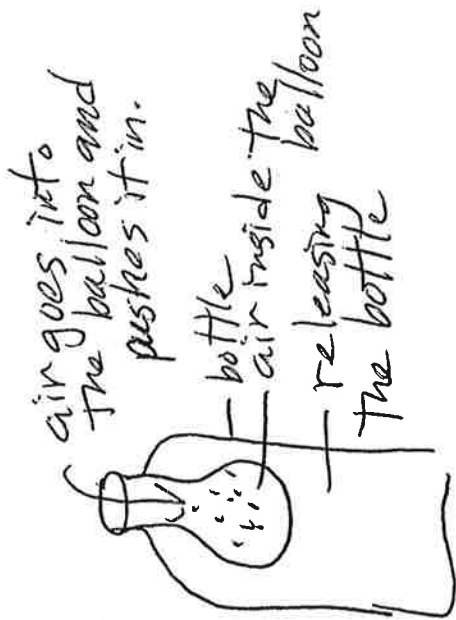 air goes into
the balloon and
pushes it in.
bottle
air inside the
balloon
releasing
the bottle